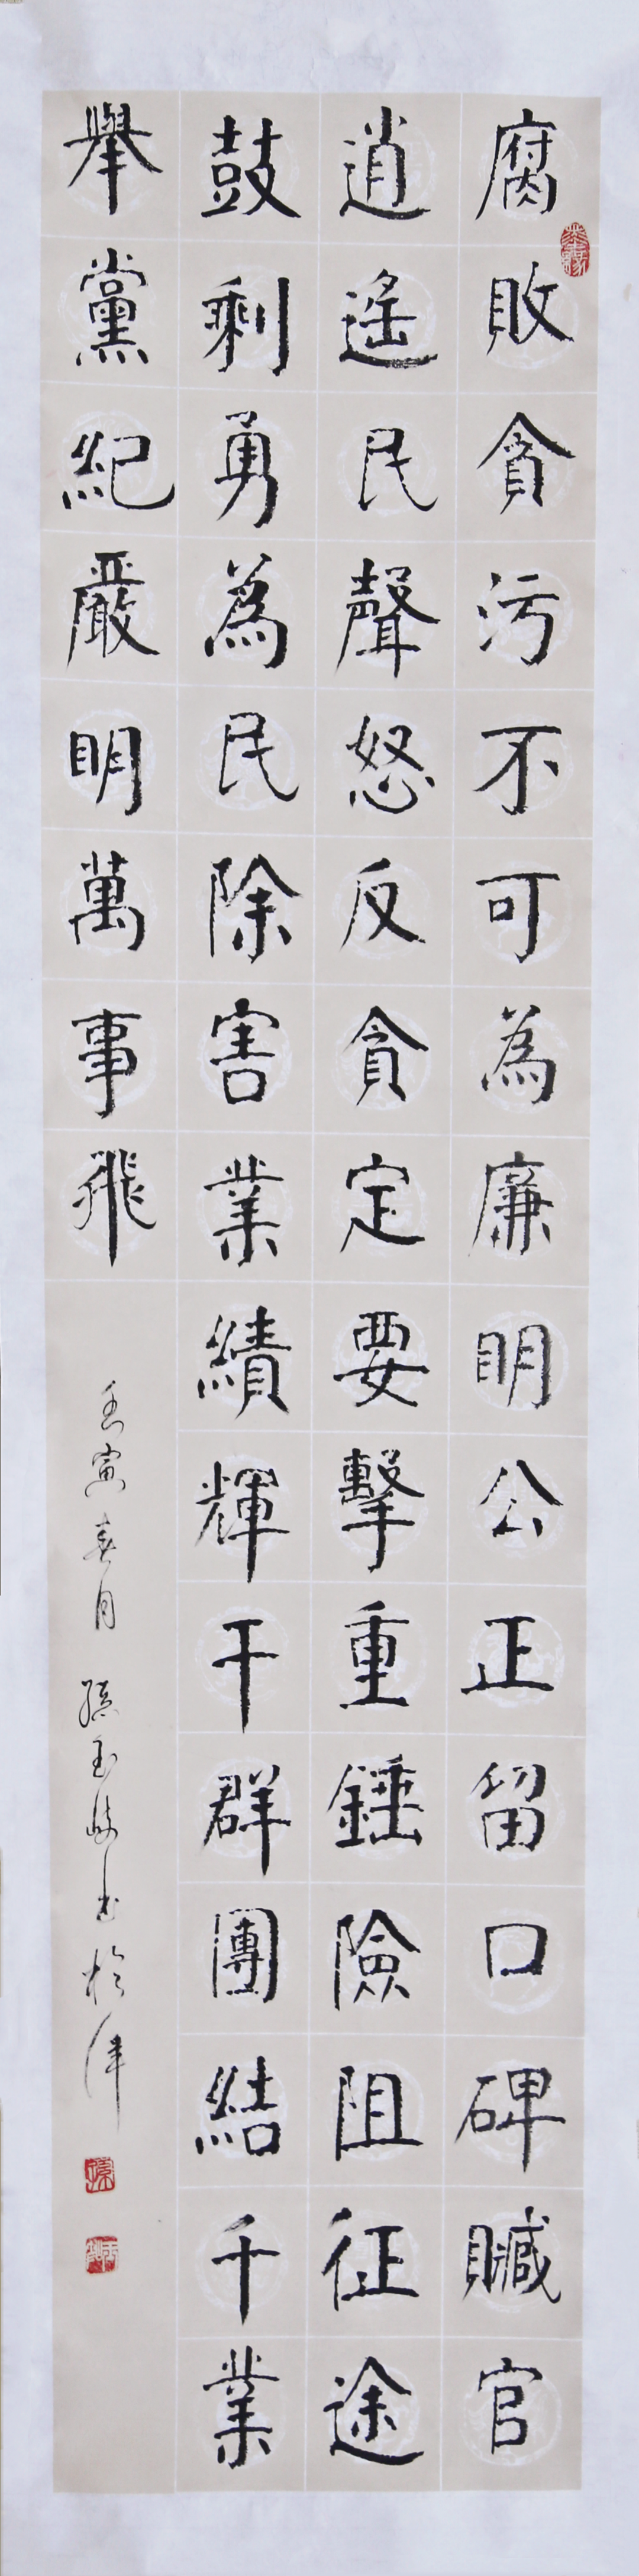 腐敗貪污不可為廉明公正留口碑贓官
逍遙民聲怒反貪定要擊重錘險阻征途
鼓剩勇為民除害業績輝干群團結千業
舉黨紀嚴明萬事飛
壬寅春月 孫玉岐书於津